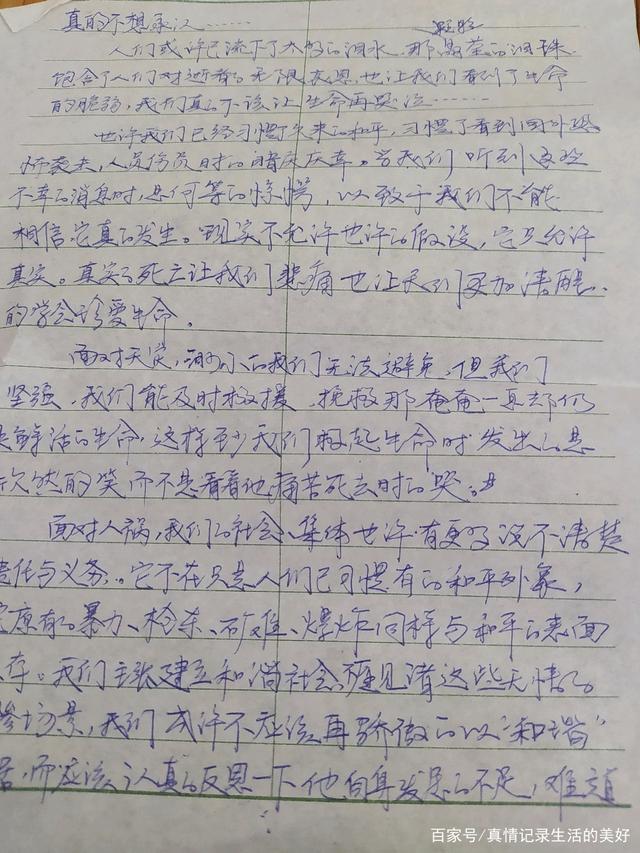 真的不想承认……
人们或许已流下了太多的泪水，那晶莹的泪珠
饱含了人们对逝者的无限哀思，也让我们看到了生命
的脆弱，我们真的不该让生命再哭泣……
也许我们已经习惯了长来的和平，习惯了看到国外恐
怖袭来，人员伤员时的暗庆庆幸。当我们听到这些
不幸的消息时，是何等的惊愕，以致于我们不能
相信它真的发生。现实不允许也许的假设，它只允许
真实。真实的死亡让我们悲痛也让我们更加清醒、
的学会珍爱生命。
面对天灾，渺小的我们无法避免，但我们
坚强，我们能及时救援，挽救那奄奄一息却仍
是鲜活的生命，这样至少我们救起生命时发出的是
欣然的笑而不是看着他痛苦死去时的哭。
面对人祸，我们的社会、集体也许有更多说不清楚
责任与义务。它不在只是人们已习惯有的和平外象，
原有的暴力、枪杀、矿难、爆炸同样与和平的表面
存。我们主张建立和谐社会，碰见渚这些无情的
惨场景，我们或许不应该再骄傲的以“和谐”
居，而应该认真的反思一下他自身发展的不足，难道
百家号/真情记录生活的美好